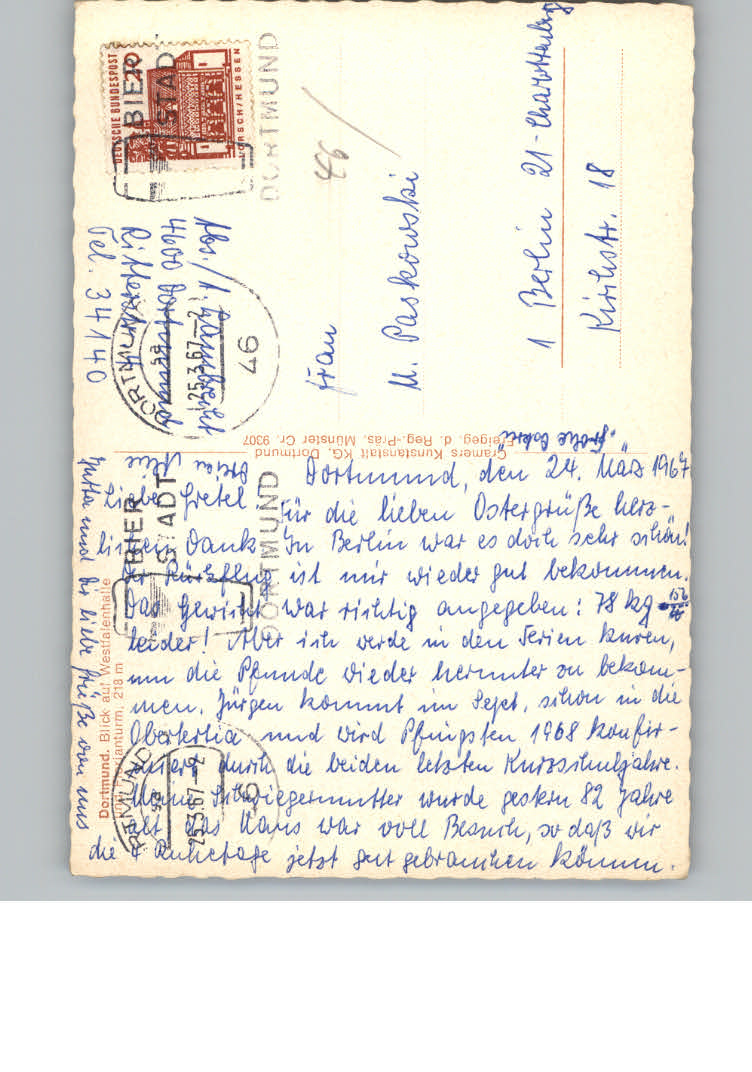 DEUTSCHE BUNDESPOST
20
LORSCH/HESSEN
BIER
STADT
DORTMUND
46
Abs./
4600 Dortmund
Tel. 34140
DORTMUND
25.3.67
46
Frau
M. Paskowski
1 Berlin 21-Charlottenburg
Kirchstr. 18
Cramers Kunstanstalt KG, Dortmund
Freigeg. d. Reg.-Präs. Münster Cr. 9307
Dortmund. Blick auf Westfalenhalle
und Florianturm, 218 m
BIER
STADT
DORTMUND
DORTMUND
25.3.67
46
Dortmund, den 24. März 1967
Liebe Gretel,
für die lieben Ostergrüße herz-
lichen Dank. In Berlin war es doch sehr schön!
Der Rückflug ist mir wieder gut bekommen.
Das Gewicht war richtig angegeben: 78 kg
leider! Aber ich werde in den Ferien kuren,
um die Pfunde wieder herunter zu bekom-
men. Jürgen kommt im Sept. schon in die
Obertertia und wird Pfingsten 1968 konfir-
miert durch die beiden letzten Kurzschuljahre.
Meine Schwiegermutter wurde gestern 82 Jahre
alt das Haus war voll Besuch, so daß wir
die 4 Ruhetage jetzt gut gebrauchen können.
"Frohe Ostern"
und Dir liebe Grüße von uns